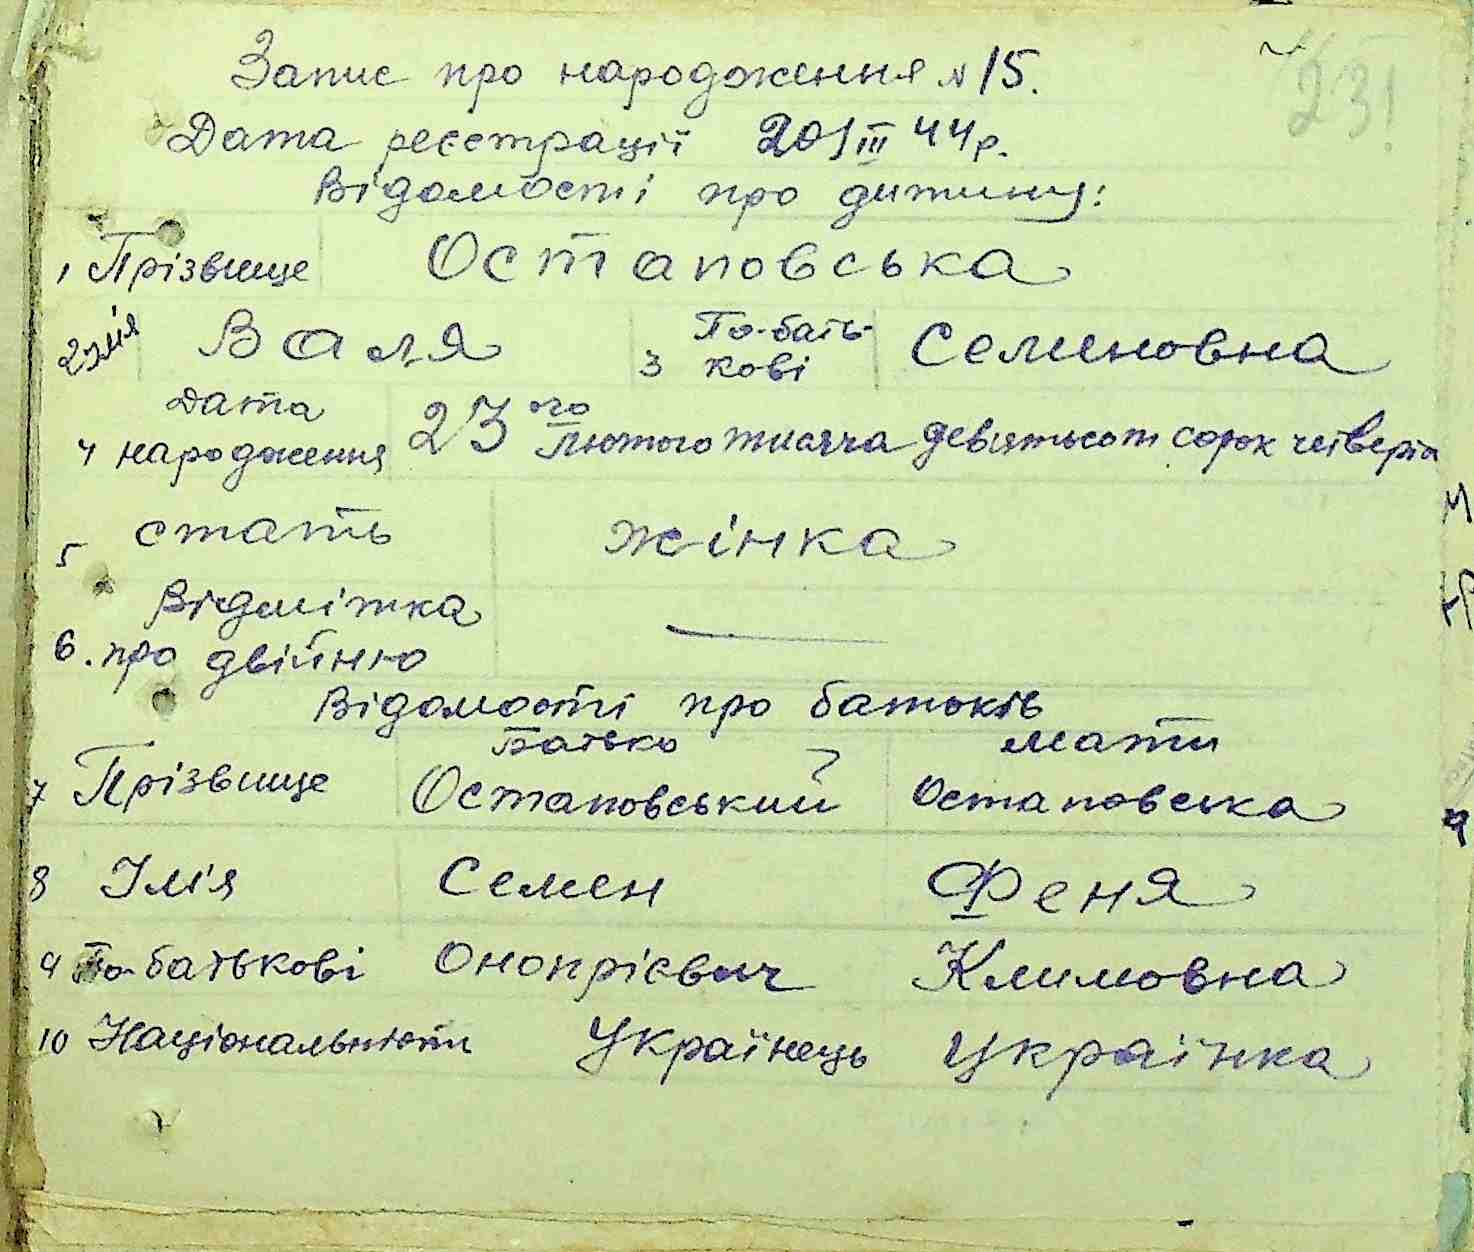 Запис про народження № 15.
231
Дата реєстрації 20/III 44р.
Відомості про дитину:
1 Прізвище Остаповська
2 Імія Валя 3 По-батькові Семеновна
4 Дата народження 23 ого лютого тисяча девятьсот сорок четверта
5 стать жінка
6. Відмітка про двійню —
Відомості про батьків
Батько Мати
7 Прізвище Остаповський Остаповська
8 Імія Семен Феня
9 По-батькові Онопрієвич Климовна
10 Національність Українець Українка